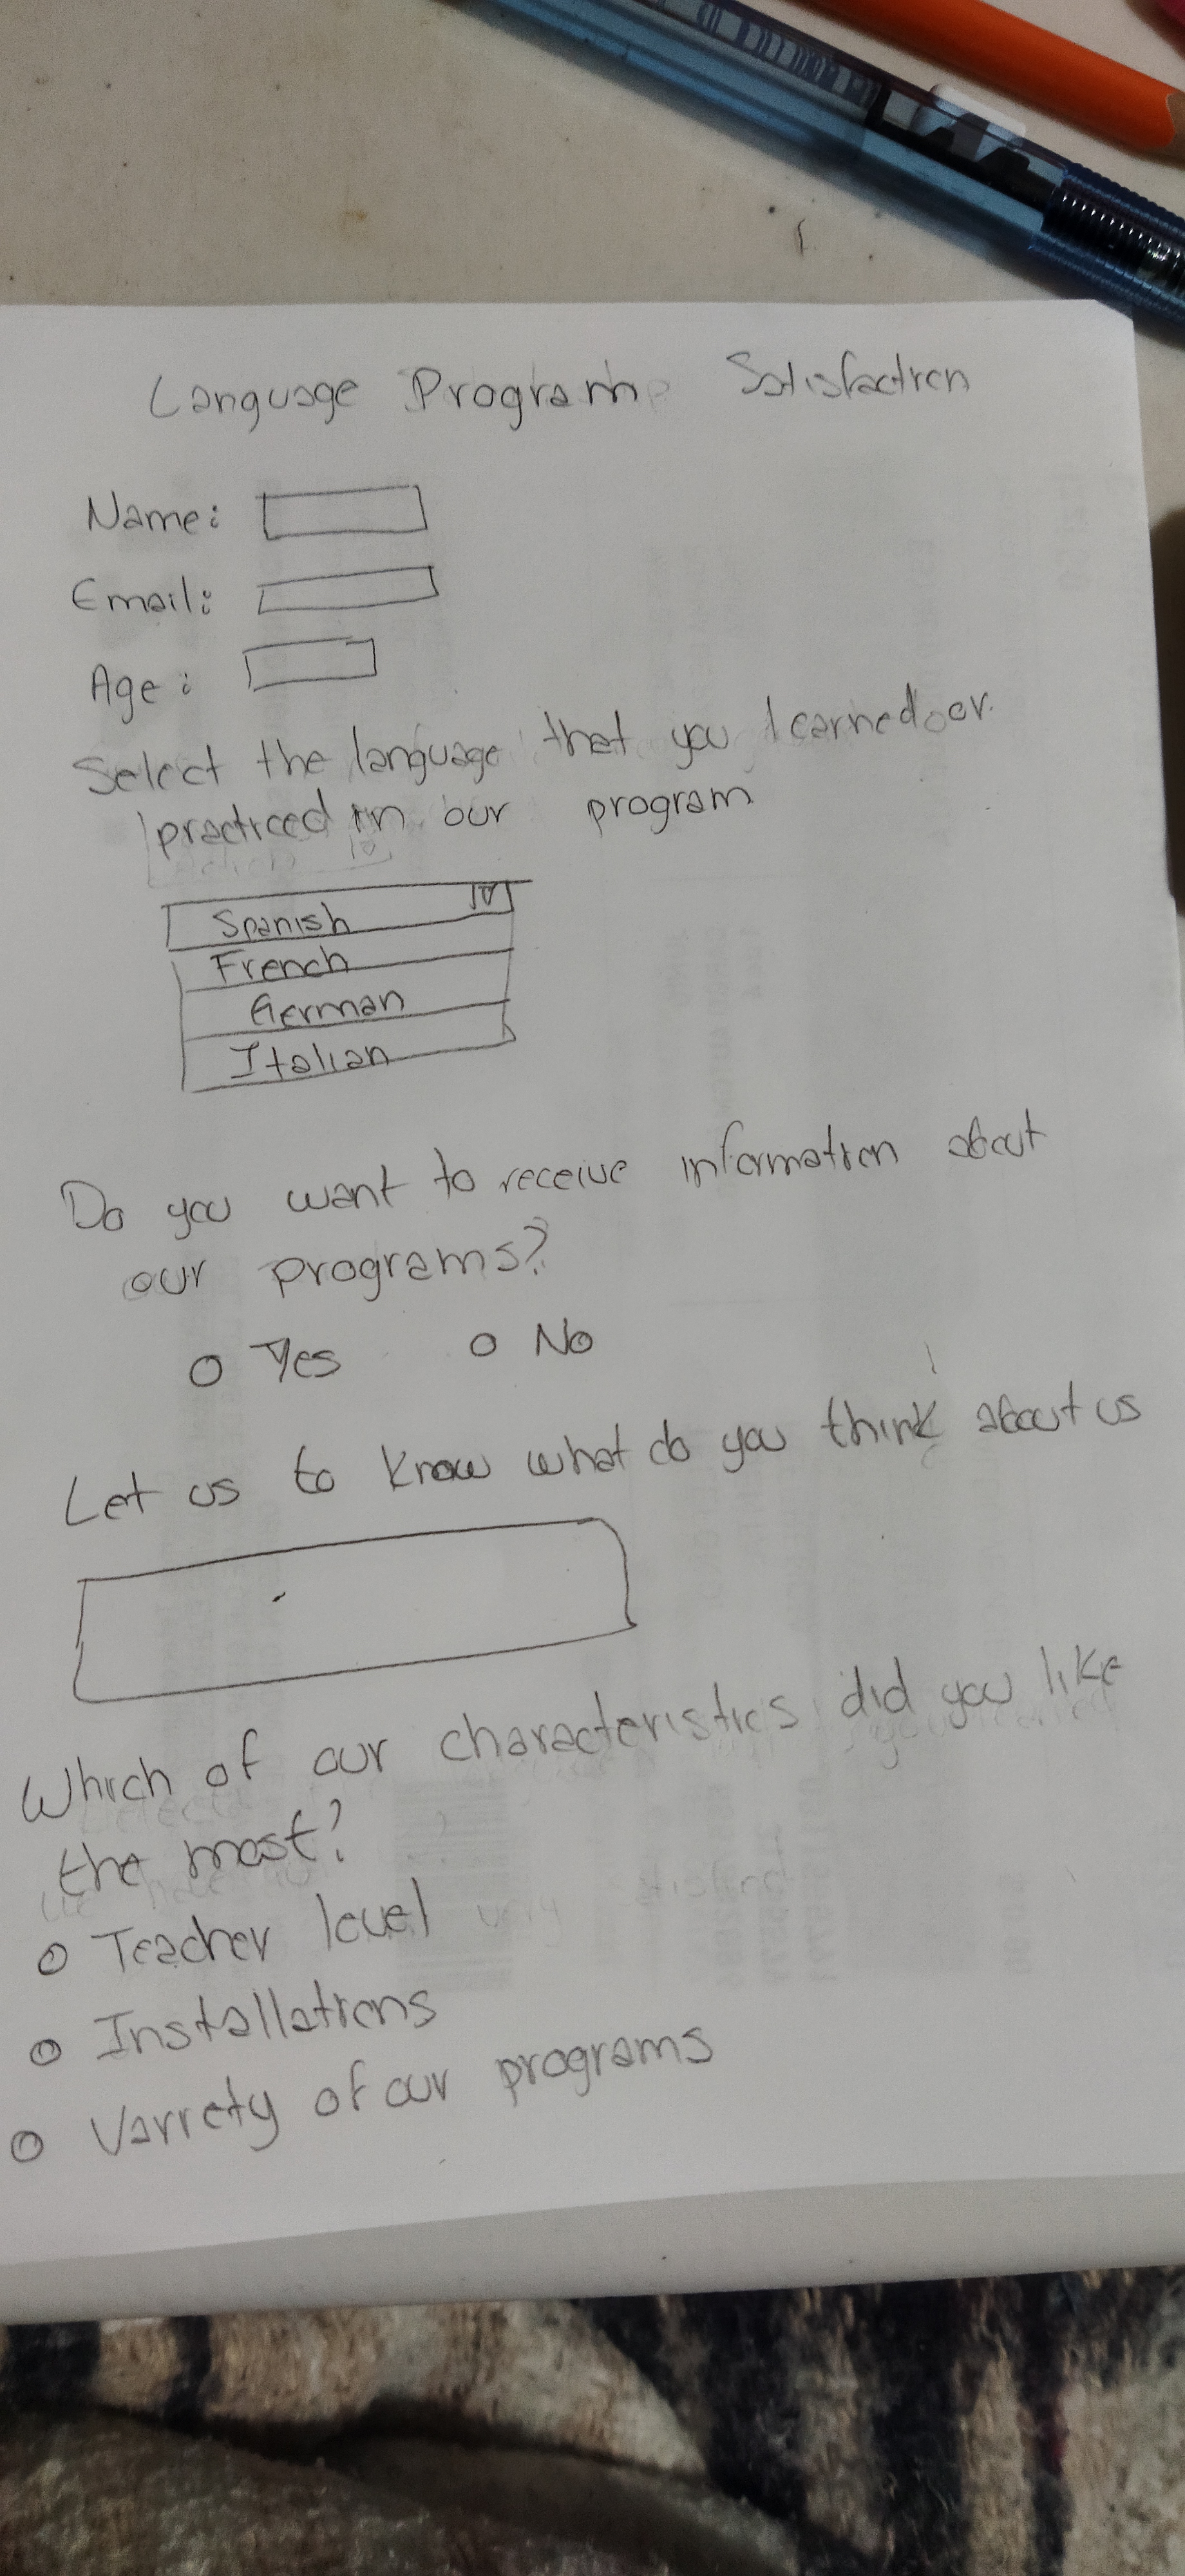 Language Program Satisfaction
Name:
Email:
Age:
Select the language that you learned or
practiced in our program
Spanish
French
German
Italian
Do you want to receive information about
our programs?
Yes No
Let us to know what do you think about us
Which of our characteristics did you like
the most?
Teacher level
Installations
Variety of our programs